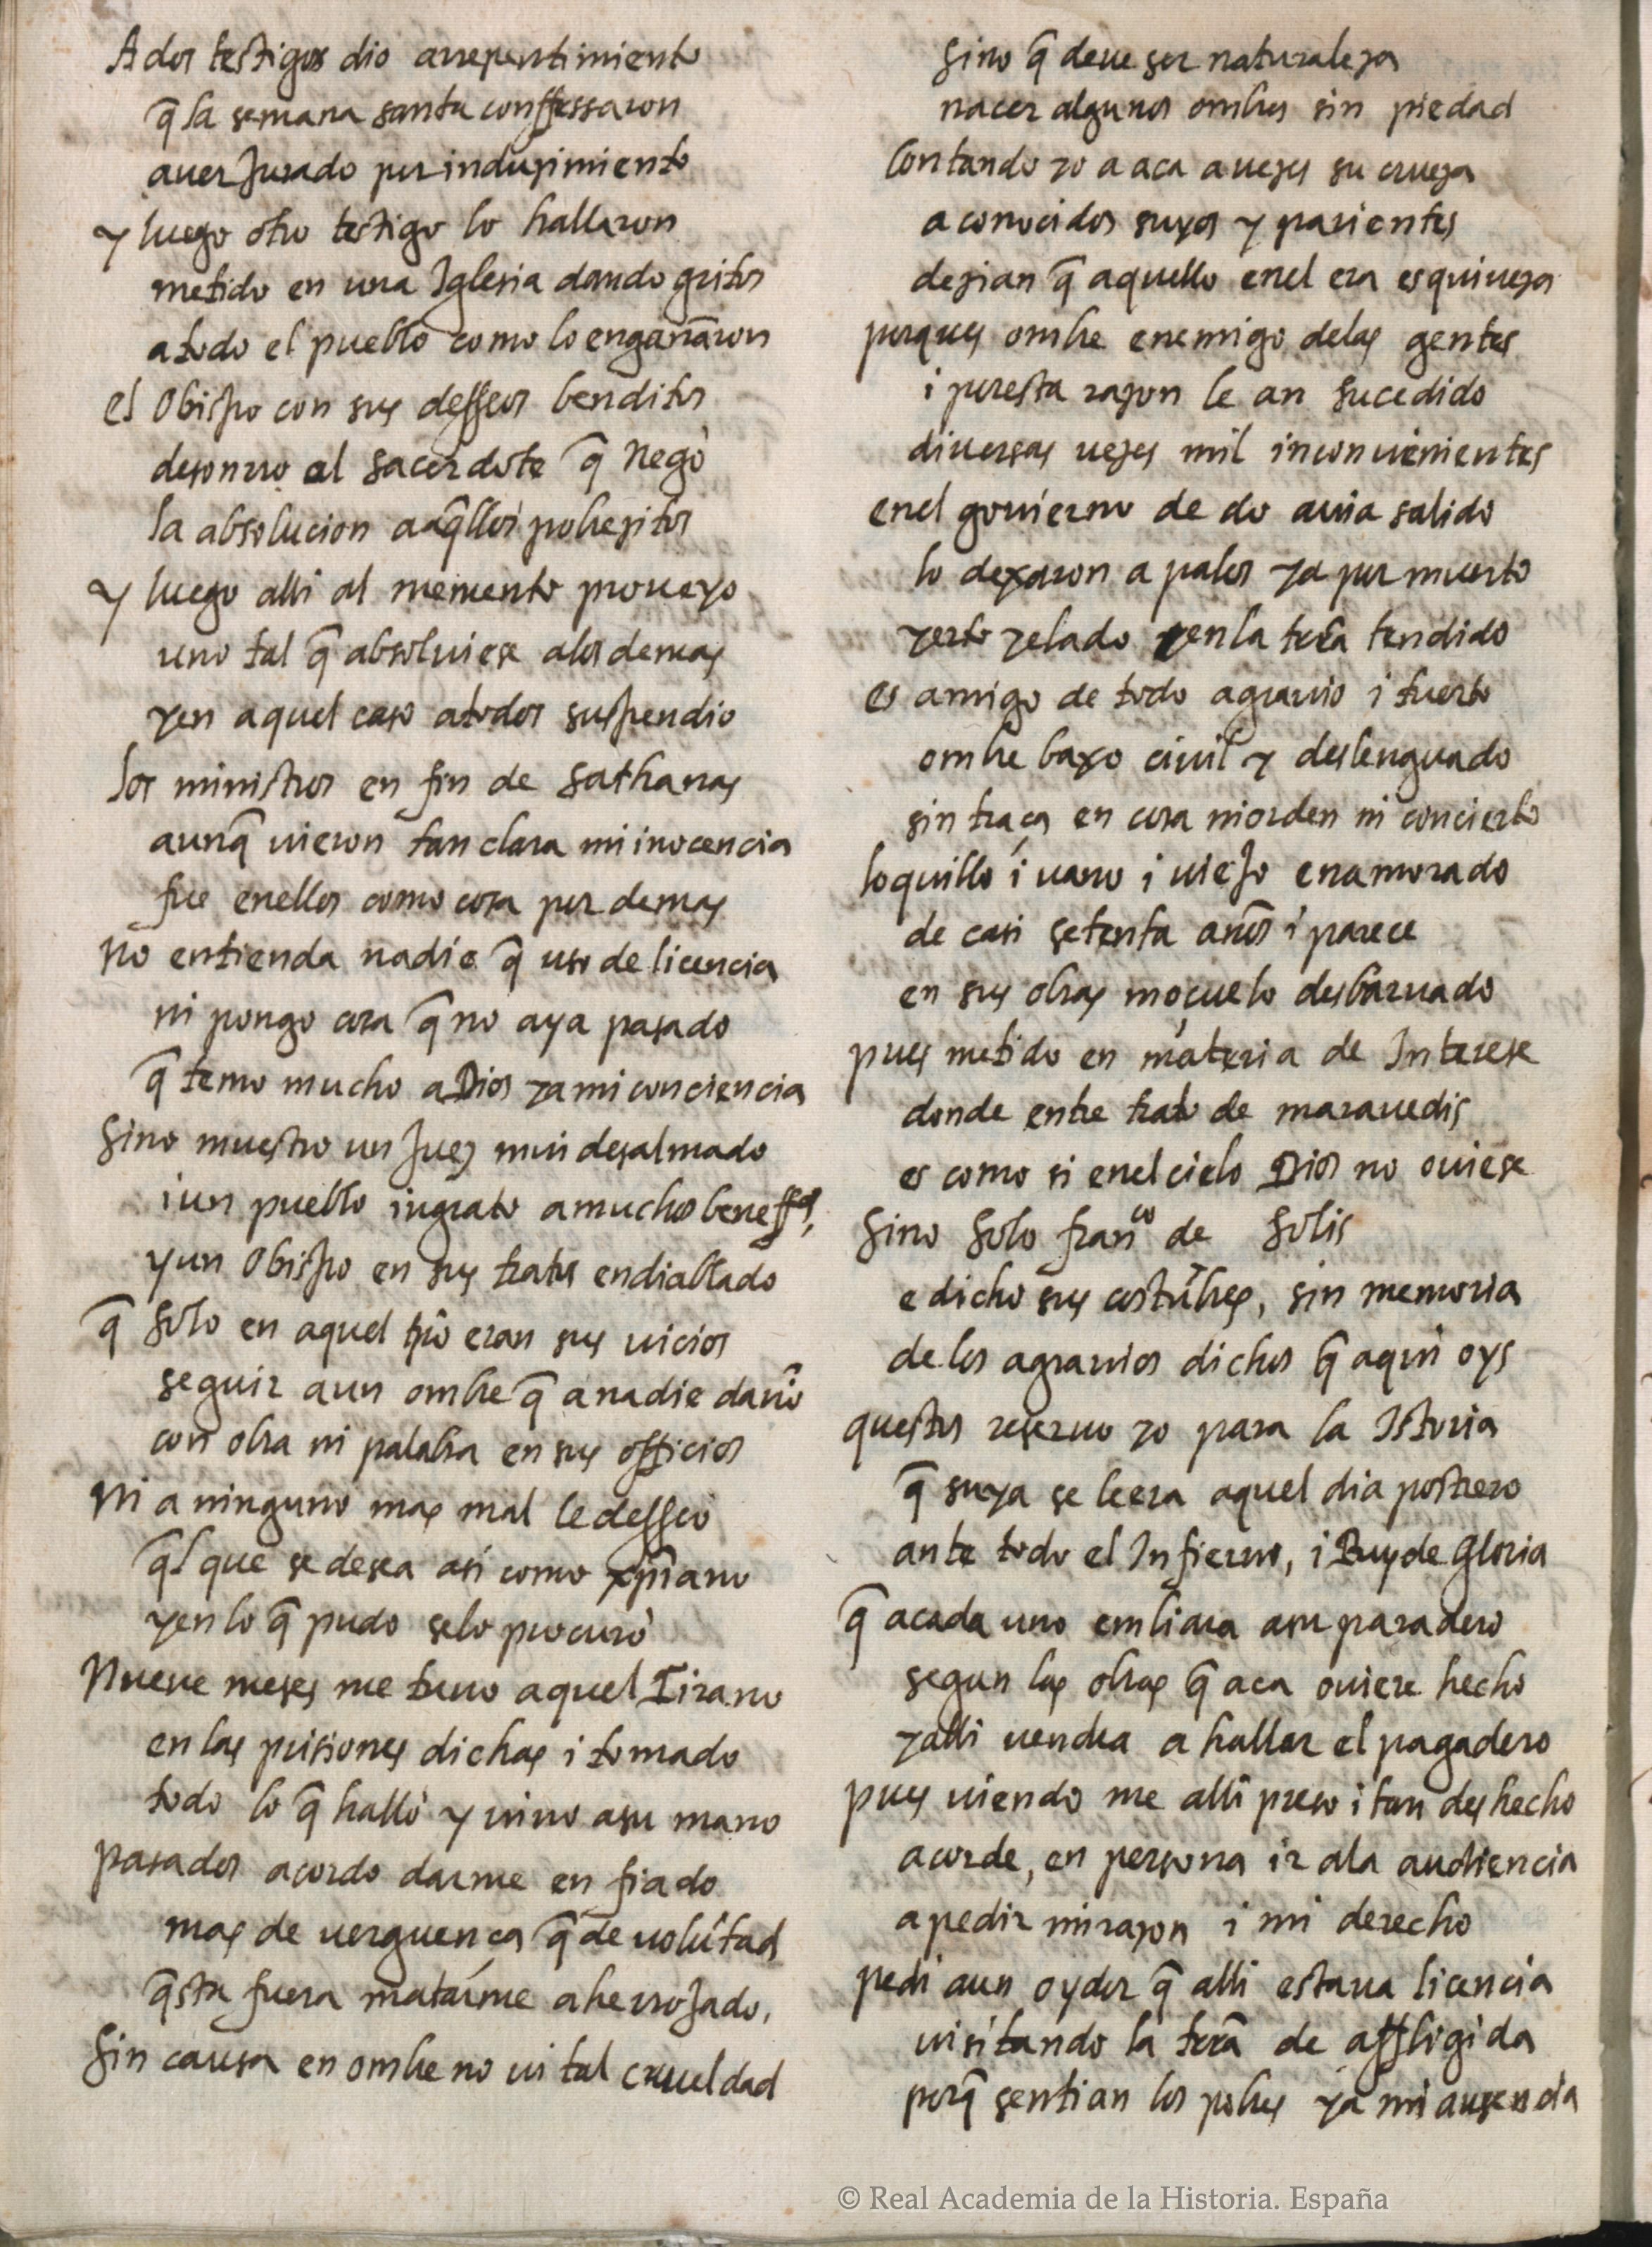 A dos testigos dio arrepentimiento
q̃ la semana santa conffessaron
auer Jurado por induzimiento
y luego otro testigo lo hallaron
metido en una Iglesia dando gritos
a todo el pueblo como lo engañaron
el Obispo con sus desseos benditos
desonrro al sacerdote q̃ negó
la absolucion a aq̃llos pobrezitos
y luego alli al memento proueyo
uno tal q̃ absoluiese a los demas
y en aquel caso a todos suspendio
los ministros en fin de sathanas
aunq̃ uieron tan clara mi inocencia
fue enellos como cosa por demas
no entienda nadie q̃ uso de licencia
ni pongo cosa q̃ no aya pasado
q̃ temo mucho a Dios y a mi conciencia
sino muestro un Juez mui desalmado
i un pueblo ingrato a muchos beneffos,
y un Obispo en sus tratos endiablado
q̃ solo en aquel tpõ eran sus uicios
seguir a un ombre q̃ a nadie dañó
con obra ni palabra en sus officios
Ni a ninguno mas mal le desseó
q̃l que se desea asi como xp̃iano
y en lo q̃ pudo selo procuró
Nueue meses me tuuo aquel Tirano
en las prisiones dichas i tomado
todo lo q̃ halló y uino a su mano
pasados acordo darme en fiado
mas de uerguença q̃ de uolũtad
q̃sta fuera matarme aherroJado,
Sin causa en ombre no ui tal crueldad
sino q̃ deue ser naturaleza
nacer algunos ombres sin piedad
Contando yo a aca a uezes su crueza
a conocidos suyos y parientes
dezian q̃ aquello enel era esquiueza
porques ombre enemigo delas gentes
i poresta razon le an sucedido
diuersas uezes mil inconuenientes
enel gouierno de do auia salido
lo dexaron a palos ya por muerto
yerto yelado y en la terra tendido
es amigo de todo agrauio i tuerto
ombre baxo ciuil y deslenguado
sin traça en cosa ni orden ni concierto
loquillo i uano i uieJo enamorado
de casi setenta años i parece
en sus obras moçuelo desbaruado
pues metido en materia de Interese
donde entre trato de marauedis
es como si enel cielo Dios no ouiese
Sino Solo franco de Solis
e dicho sus costũbres, sin memoria
de los agrauios dichos q̃ aqui oys
questos reseruo yo para la Istoria
q̃ suya se leera aquel dia postrero
ante todo el Infierno, i Rey de Gloria
q̃ a cada uno embiara a su paradero
segun las obras q̃ aca ouiere hecho
y alli vendra a hallar el pagadero
pues uiendo me alli preso i tan deshecho
acorde, en persona ir ala audiencia
a pedir mi razon i mi derecho
pedi a un oydor q̃ alli estaua licencia
uisitando la terra de affligida
porq̃ sentian los pobres ya mi ausencia
© Real Academia de la Historia. España